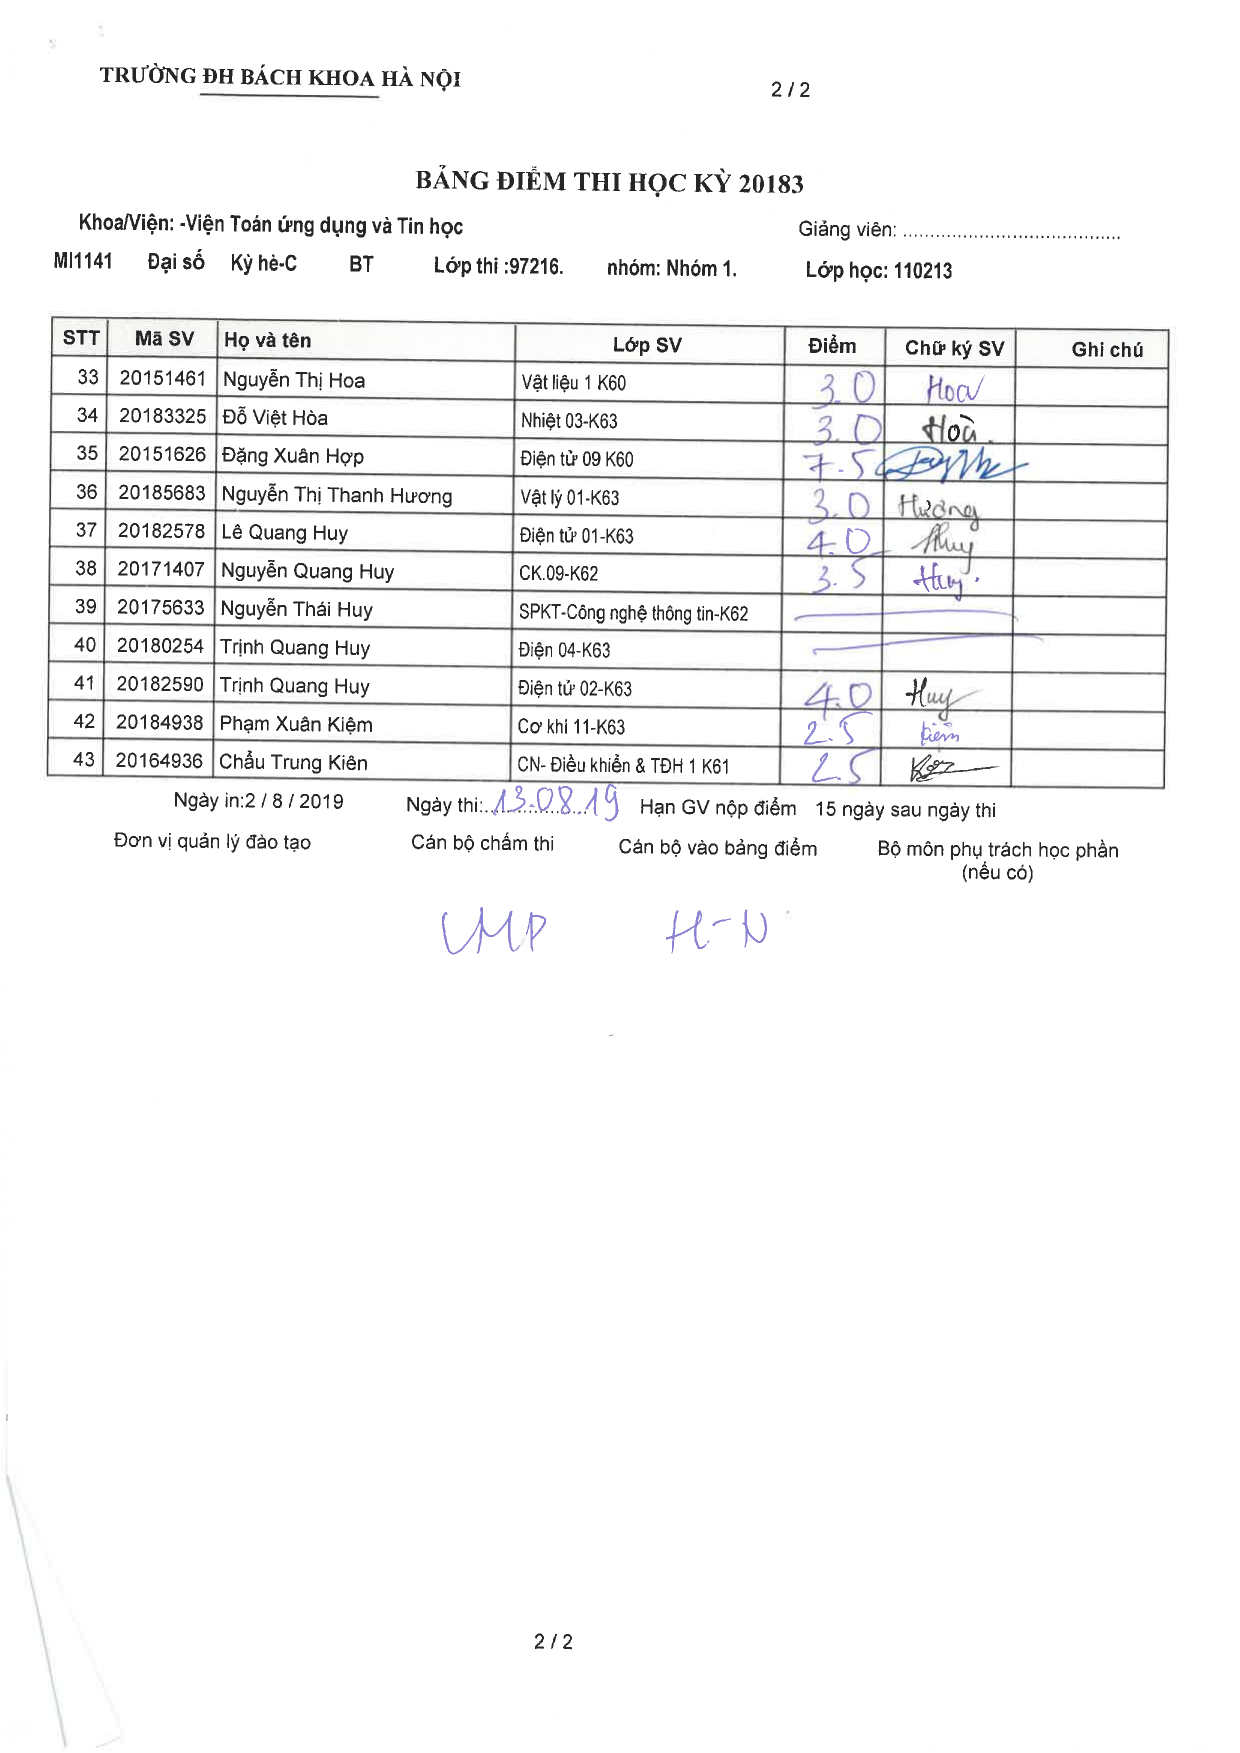 TRƯỜNG ĐH BÁCH KHOA HÀ NỘI
2 / 2
BẢNG ĐIỂM THI HỌC KỲ 20183
Khoa/Viện: -Viện Toán ứng dụng và Tin học Giảng viên: ........................................
MI1141 Đại số Kỳ hè-C BT Lớp thi :97216. nhóm: Nhóm 1. Lớp học: 110213
STT Mã SV Họ và tên Lớp SV Điểm Chữ ký SV Ghi chú
33 20151461 Nguyễn Thị Hoa Vật liệu 1 K60 3.0 Hoa
34 20183325 Đỗ Việt Hòa Nhiệt 03-K63 3.0 Hoà.
35 20151626 Đặng Xuân Hợp Điện tử 09 K60 7.5
36 20185683 Nguyễn Thị Thanh Hương Vật lý 01-K63 3.0 Hương
37 20182578 Lê Quang Huy Điện tử 01-K63 4.0 Huy
38 20171407 Nguyễn Quang Huy CK.09-K62 3.5 Huy.
39 20175633 Nguyễn Thái Huy SPKT-Công nghệ thông tin-K62
40 20180254 Trịnh Quang Huy Điện 04-K63
41 20182590 Trịnh Quang Huy Điện tử 02-K63 4.0 Huy
42 20184938 Phạm Xuân Kiệm Cơ khí 11-K63 2.5 kiệm
43 20164936 Chẩu Trung Kiên CN- Điều khiển & TĐH 1 K61 2.5
Ngày in:2 / 8 / 2019 Ngày thi:..13.08.19 Hạn GV nộp điểm 15 ngày sau ngày thi
Đơn vị quản lý đào tạo Cán bộ chấm thi Cán bộ vào bảng điểm Bộ môn phụ trách học phần
(nếu có)
VMP H-N
2 / 2